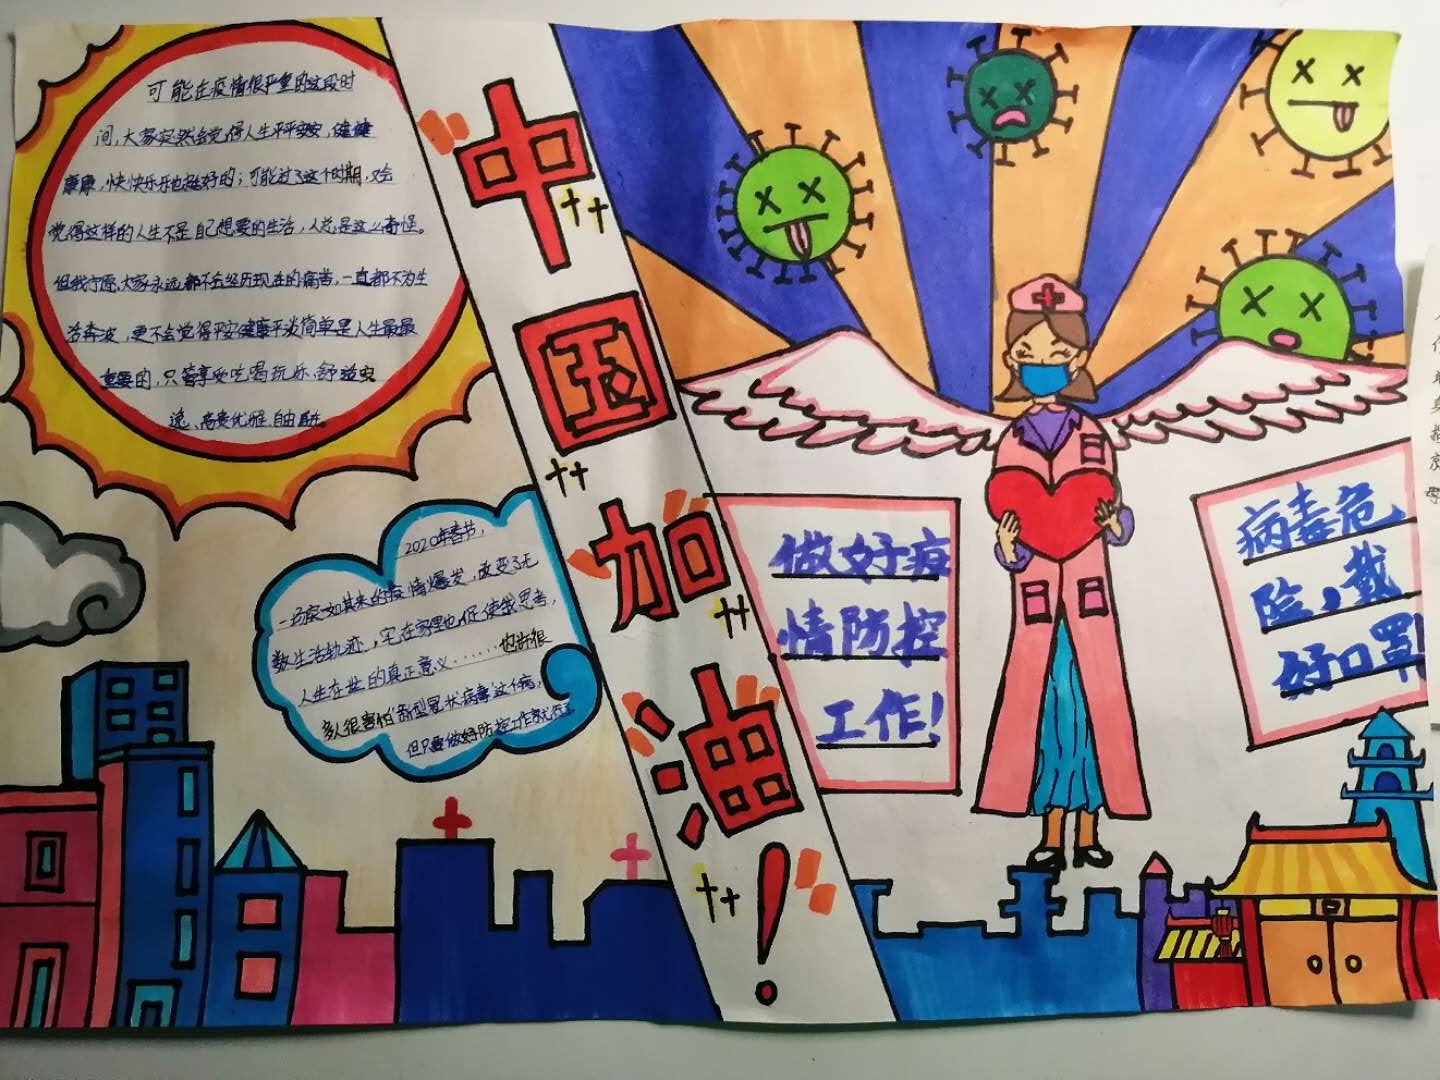 可能在疫情很严重的这段时
间，大家突然会觉得人生平平安安，健健
康康，快快乐乐也挺好的；可能过了这个时期，又会
觉得这样的人生不是自己想要的生活，人总是这么奇怪。
但我宁愿大家永远都不会经历现在的痛苦，一直都不为生
活奔波，更不会觉得平安健康平淡简单是人生最最
重要的，只管享受吃喝玩乐、舒适安
逸、高贵优雅、自由自在。
2020年春节，
一场突如其来的疫情爆发，改变了无
数生活轨迹，宅在家里也促使我思考，
人生在世的真正意义……也许很
多人很害怕“新型冠状病毒”这个病，
但只要做好防控工作就行了
中国加油！
做好疫
情防控
工作！
病毒危
险，戴
好口罩！